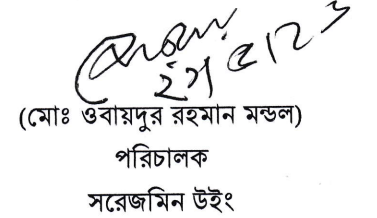 (মোঃ ওবায়দুর রহমান মন্ডল)
পরিচালক
সরেজমিন উইং